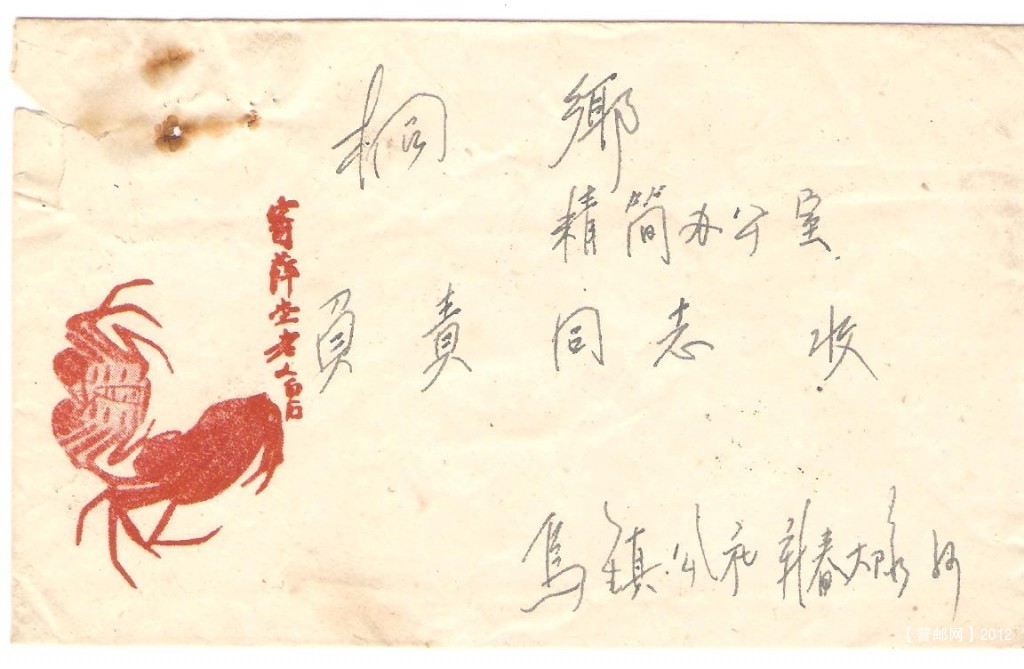 桐鄉
精简办公室
負責同志收
烏鎮公社新春大队
寄萍堂老人白石
【普邮网】2012